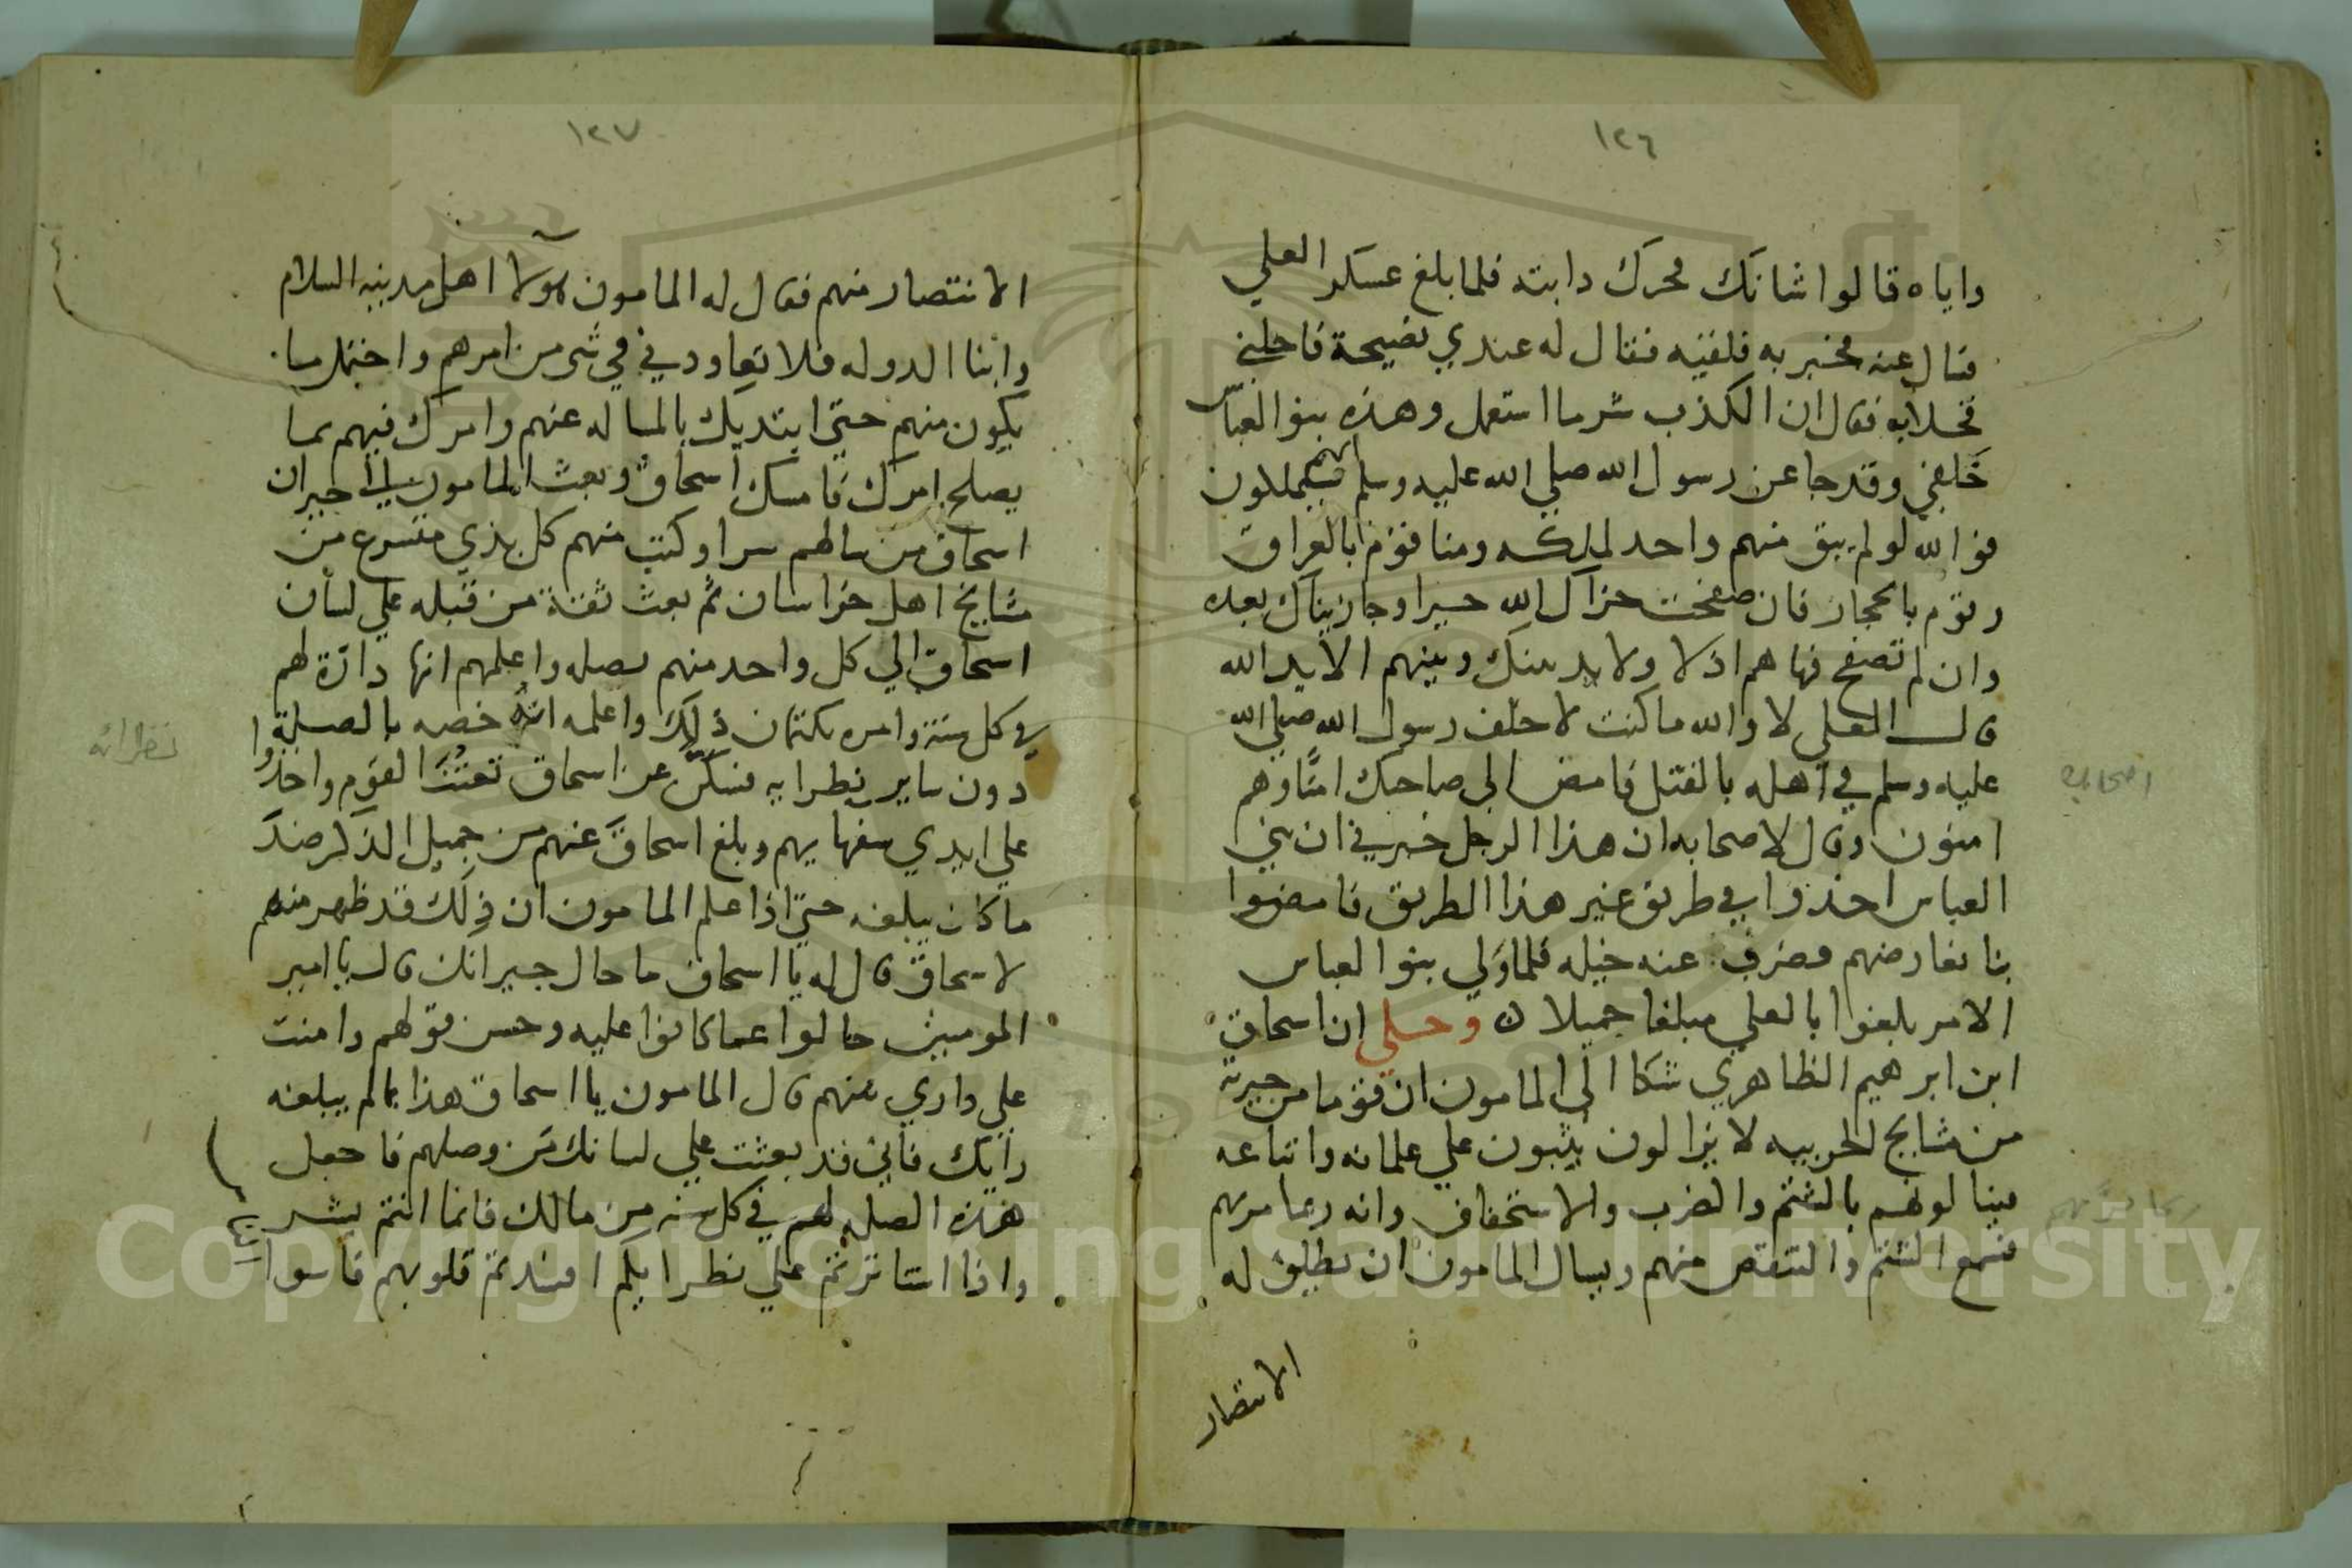 ١٢٦
واياه قالوا شانك فحرك دابته فلما بلغ عسكر العلي
قال عنه فخبر به فلقيه فقال له عندي نصيحة فاخلني
فخلا به فقال ان الكذب شر ما استعمل وهذه بنو العباس
خلفي وقد جا عن رسول الله صلي الله عليه وسلم انهم سيملكون
فوالله لو لم يبق منهم واحد لملكه ومنا قوم بالعراق
وقوم بالحجاز فان صفحت جزاك الله خيرا وجازيناك بعده
وان لم تصفح فها هم اولا ولا يد بينك وبينهم الا يد الله
قال العلي لا والله ما كنت لاخلف رسول الله صلي الله
عليه وسلم في اهله بالقتل فامض الي صاحبك امنا وهم
امنون وقال لاصحابه ان هذا الرجل خبرني ان بني
العباس اخذوا في طريق غير هذا الطريق فامضوا
بنا نعارضهم فصرف عنه خيله فلما ولي بنو العباس
الامر بلغوا بالعلي مبلغا جميلا وحكي ان اسحاق
ابن ابرهيم الظاهري شكا الي المامون ان قوما من جيرته
من مشايخ الحربيه لا يزالون يثبون علي غلمانه واتباعه
فينالونهم بالشتم والضرب والاستخفاف وانه ربما مر بهم
فسمع الشتم والتنقص منهم ويسال المامون ان يطلق له
الانتصار
اصحابك
ربما مر بهم
١٢٧
الانتصار منهم فقال له المامون هولا اهل مدينه السلام
وابنا الدوله فلا تعاودني في شي من امرهم واحتمل ما
يكون منهم حتي ابتديك بالمساله عنهم وامرك فيهم بما
يصلح امرك فامسك اسحاق وبعث المامون الي جيران
اسحاق من سالهم سرا وكتب منهم كل بذي متسرع من
مشايخ اهل خراسان ثم بعث ثقة من قبله علي لسان
اسحاق الي كل واحد منهم بصله واعلمهم انها دارة لهم
في كل سنة وامره بكتمان ذلك واعلمه انه خصه بالصلة
دون ساير نظرايه فسكن عن اسحاق تعنت القوم واخذوا
علي ايدي سفهايهم وبلغ اسحاق عنهم من جميل الذكر ضد
ما كان يبلغه حتي اذا علم المامون ان ذلك قد ظهر منهم
لاسحاق قال له يا اسحاق ما حال جيرانك قال يا امير
المومنين حالوا عما كانوا عليه وحسن قولهم وامنت
علي داري منهم قال المامون يا اسحاق هذا بما لم يبلغه
رايك فاني قد بعثت علي لسانك من وصلهم فاجعل
هذه الصله لهم في كل سنه من مالك فانما انتم بشر
واذا استاثرتم علي نظرايكم افسدتم قلوبهم فاسوا
نظرائه